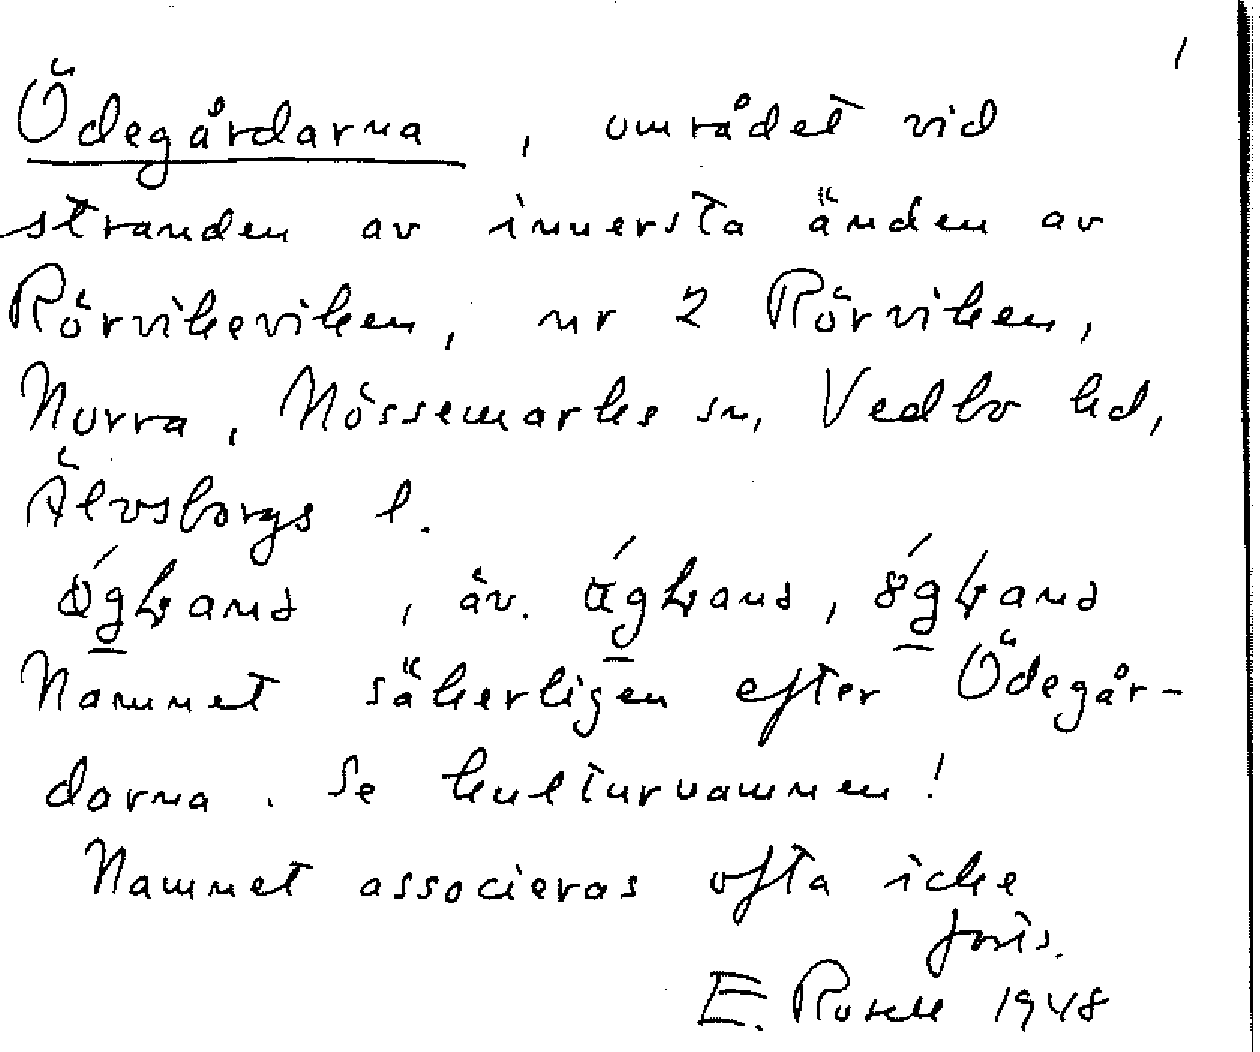 1
Ödegårdarna, området vid
stranden av innersta änden av
Rörvikeviken, nr 2 Rörviken,
Norra, Nössemarks sn, Vedbo hd,
Älvsborgs l.
, äv.
Namnet säkerligen efter Ödegår-
darna. Se kulturnamnen!
Namnet associeras ofta icke
forts.
E. 1948